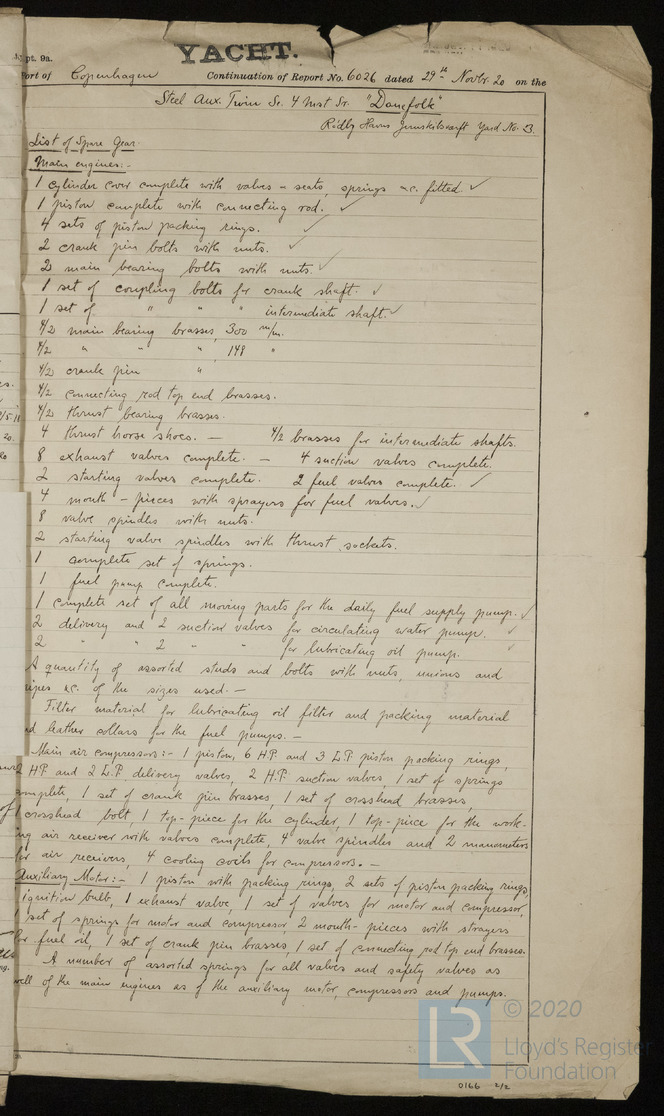 Rpt. 9a.
YACHT.
Port of Copenhagen Continuation of Report No. 6026 dated 29th Novbr. 20 on the
Steel Aux. Twin Sc. 4 Mst Sr. "Danefolk"
Rödby Havns Yard No. 3.
List of Spare Gear
Main engines:-
1 cylinder cover complete with valves - seats, springs &c. fitted. ✓
1 piston complete with connecting rod. ✓
4 sets of piston packing rings. ✓
2 crank pin bolts with nuts. ✓
2 main bearing bolts with nuts. ✓
1 set of coupling bolts for crank shaft. ✓
1 set of " " " intermediate shaft. ✓
4/2 main bearing brasses, 300 m/m.
4/2 " " " 148 "
4/2 crank pin "
4/2 connecting rod top end brasses.
4/2 thrust bearing brasses.
4 thrust horse shoes. — 4/2 brasses for intermediate shafts.
8 exhaust valves complete. — 4 suction valves complete.
2 starting valves complete. 2 fuel valves complete. ✓
4 mouth-pieces with sprayers for fuel valves. ✓
8 valve spindles with nuts.
2 starting valve spindles with thrust sockets.
1 complete set of springs.
1 fuel pump complete.
1 complete set of all moving parts for the daily fuel supply pump. ✓
2 delivery and 2 suction valves for circulating water pump. ✓
2 " " 2 " " for lubricating oil pump. ✓
A quantity of assorted studs and bolts with nuts, unions and
pipes &c. of the sizes used. —
Filter material for lubricating oil filter and packing material
and leather collars for the fuel pumps. —
Main air compressors:- 1 piston, 6 H.P. and 3 L.P. piston packing rings,
2 H.P. and 2 L.P. delivery valves, 2 H.P. suction valves 1 set of springs
complete, 1 set of crank pin brasses, 1 set of crosshead brasses,
1 crosshead bolt, 1 top-piece for the cylinder, 1 top-piece for the work-
ing air receiver with valves complete, 4 valve spindles and 2 manometers
for air receivers, 4 cooling coils for compressors. —
Auxiliary Motor:- 1 piston with packing rings, 2 sets of piston packing rings,
1 ignition bulb, 1 exhaust valve, 1 set of valves for motor and compressor,
1 set of springs for motor and compressor, 2 mouth-pieces with strayers
for fuel oil, 1 set of crank pin brasses, 1 set of connecting rod top end brasses.
A number of assorted springs for all valves and safety valves as
well of the main engines as of the auxiliary motor, compressors and pumps.
© 2020
LR
Lloyd's Register
Foundation
0166 2/2